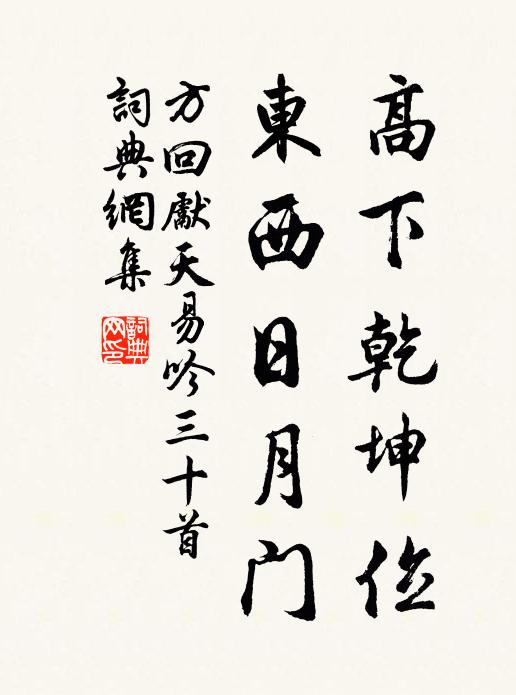 高下乾坤位
東西日月门
方回獻天易吟三十首
詞典網集
詞典网印